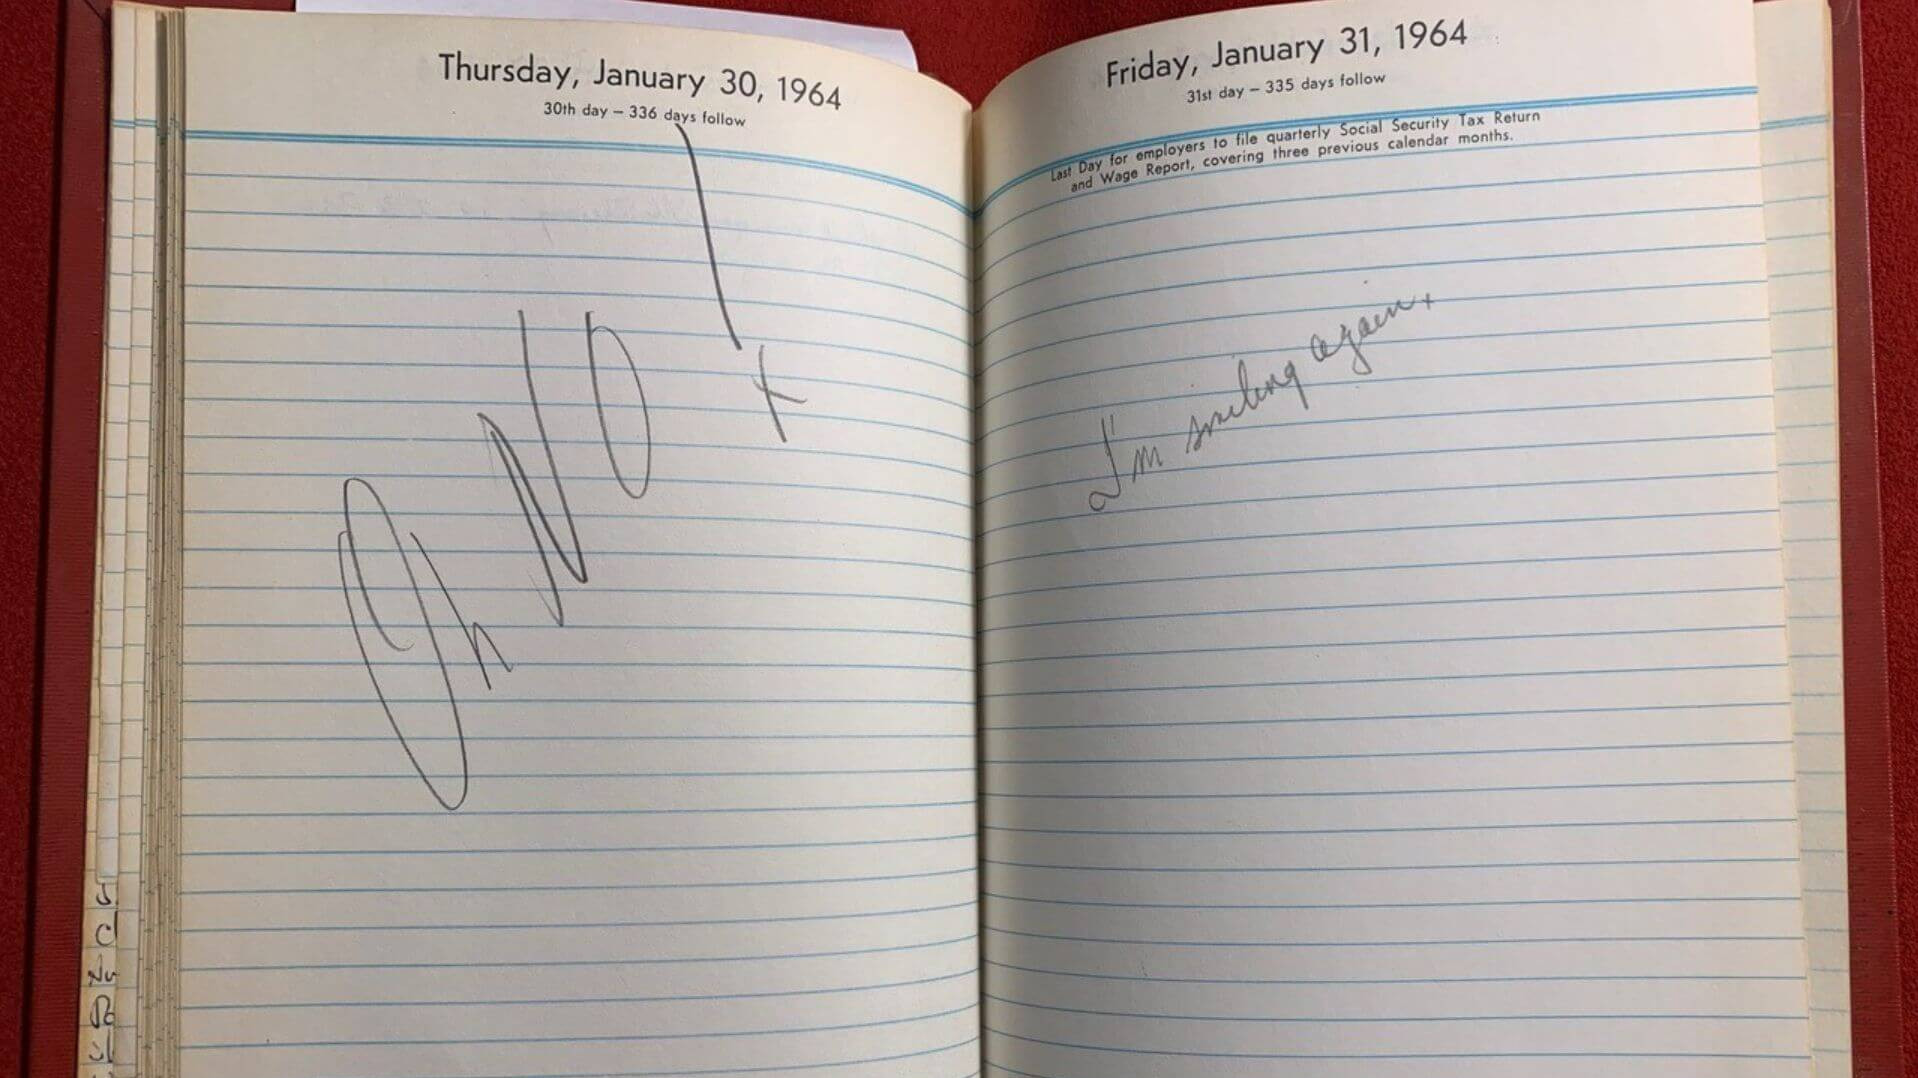 Thursday, January 30, 1964
30th day – 336 days follow
Oh NO!
Friday, January 31, 1964
31st day – 335 days follow
Last Day for employers to file quarterly Social Security Tax Return
and Wage Report, covering three previous calendar months.
I'm smiling again.